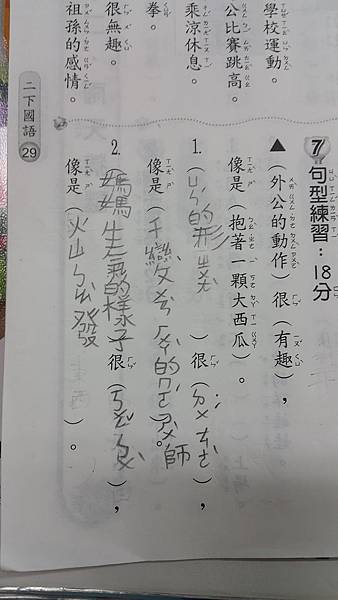 學校運動。
公比賽跳高。
乘涼休息。
拳。
很無趣。
祖孫的感情。
7 句型練習：18分
▲（外公的動作）很（有趣），
像是（抱著一顆大西瓜）。
1.（ㄕㄢ的形）很（ㄉㄨˊㄊㄜˋ），
像是（千變 的 師）。
2.（媽媽生氣的樣子）很（ㄎㄨㄥˇㄅㄨˋ），
像是（火山ㄅㄠˋ發）。
二下國語 29